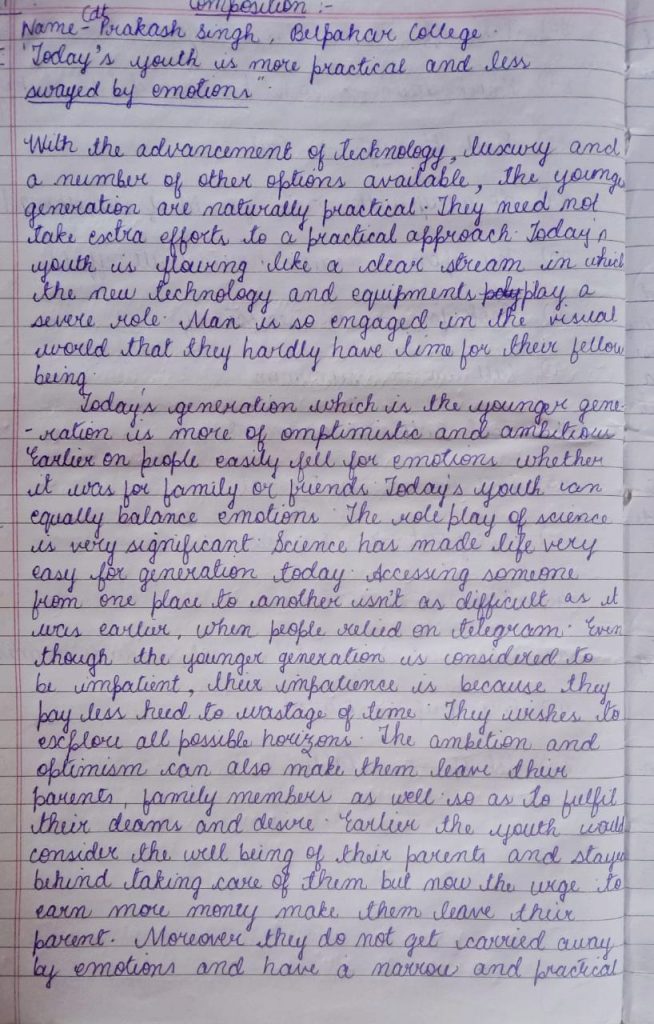 Composition :-
Cdt
Name- Prakash Singh, Belpahar College.
"Today's youth is more practical and less
swayed by emotions".
With the advancement of technology, luxury and
a number of other options available, the younge
generation are naturally practical. They need not
take extra efforts to a practical approach. Today's
youth is flowing like a clear stream in which
the new technology and equipments play a
severe role. Man is so engaged in the visual
world that they hardly have time for their fellow
being.
Today's generation which is the younger gene-
-ration is more of omptimistic and ambitious
Earlier on people easily fell for emotions whether
it was for family or friends. Today's youth can
equally balance emotions. The role play of science
is very significant. Science has made life very
easy for generation today. Accessing someone
from one place to another isn't as difficult as it
was earlier, when people relied on telegram. Even
though the younger generation is considered to
be impatient, their impatience is because they
pay less heed to wastage of time. They wishes to
explore all possible horizons. The ambition and
optimism can also make them leave their
parents, family members as well so as to fulfil
their deams and desire. Earlier the youth would
consider the well being of their parents and stayed
behind taking care of them but now the urge to
earn more money make them leave their
parent. Moreover they do not get carried away
by emotions and have a narrow and practical